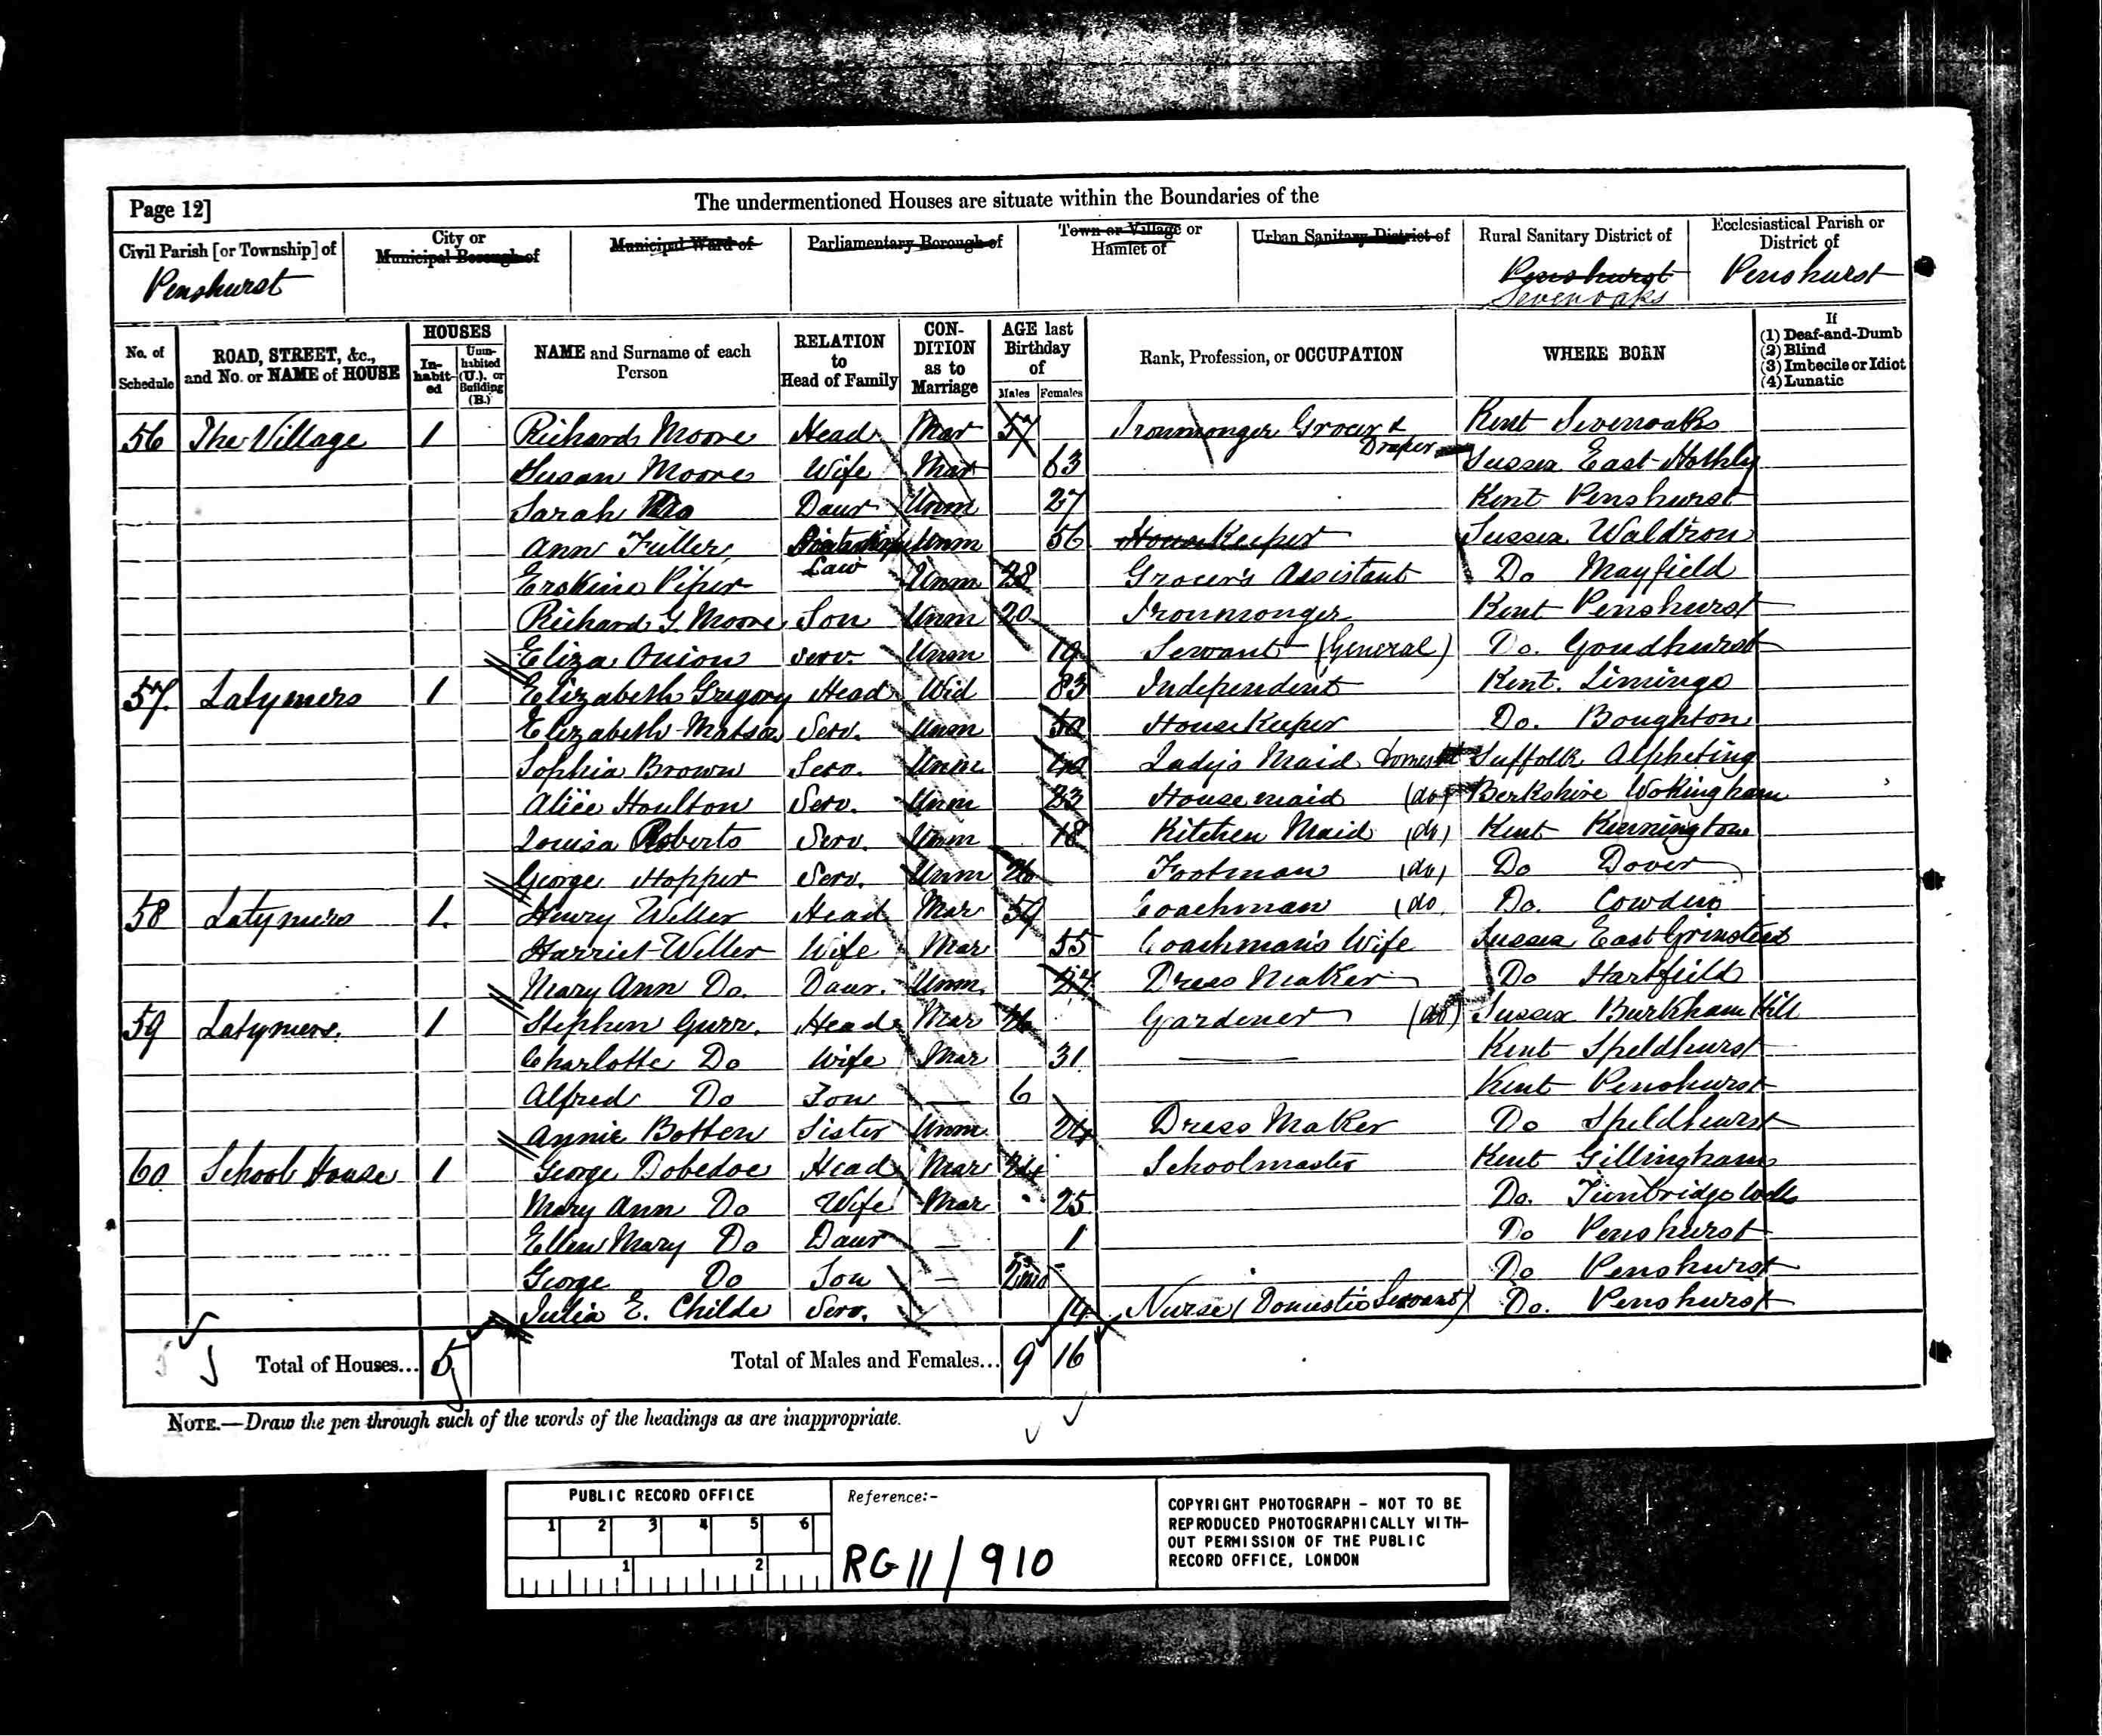 Page 12]
The undermentioned Houses are situate within the Boundaries of the
Civil Parish [or Township] of
City or Municipal Borough of
Municipal Ward of
Parliamentary Borough of
Town or Village or Hamlet of
Urban Sanitary District of
Rural Sanitary District of
Ecclesiastical Parish or District of
Penshurst
Penshurst
Sevenoaks
Penshurst
No. of Schedule
ROAD, STREET, &c., and No. or NAME of HOUSE
HOUSES
In-habit-ed
Unin-habited (U.), or Building (B.)
NAME and Surname of each Person
RELATION to Head of Family
CON-DITION as to Marriage
AGE last Birthday of
Males
Females
Rank, Profession, or OCCUPATION
WHERE BORN
If
(1) Deaf-and-Dumb
(2) Blind
(3) Imbecile or Idiot
(4) Lunatic
56 The Village 1 Richard Moore Head Mar 57 Ironmonger Grocer & Draper Kent Sevenoaks
Susan Moore Wife Mar 63 Sussex East Hothly
Sarah Do Daur Unm 27 Kent Penshurst
Ann Fuller Law Unm 56 HouseKeeper Sussex Waldron
Erskine Piper Unm 28 Grocer's Assistant Do Mayfield
Richard G. Moore Son Unm 20 Ironmonger Kent Penshurst
Eliza Onion Serv. Unm 19 Servant (General) Do. Goudhurst
57. Latymers 1 Elizabeth Gregory Head Wid 83 Independent Kent. Liminge
Elizabeth Serv. Unm 50 HouseKeeper Do. Boughton
Sophia Brown Serv. Unm Lady's Maid Suffolk Alpheting
Alice Houlton Serv. Unm 23 Housemaid (do) Berkshire Wokingham
Louisa Roberts Serv. Unm 18 Kitchen Maid (do) Kent Kennington
George Hopper Serv. Unm Footman (do) Do Dover
58 Latymers 1. Henry Weller Head Mar 59 Coachman (do. Do. Cowden
Harriet Weller Wife Mar 55 Coachman's Wife Sussex East Grinstead
Mary Ann Do. Daur. Unm. 24 Dress Maker Do Hartfield
59 Latymers. 1 Stephen Gurr. Head Mar Gardener (do) Sussex Burkham Hill
Charlotte Do Wife Mar 31 Kent Speldhurst
Alfred Do Son — 6 Kent Penshurst
Annie Botten Sister Unm. 24 Dress Maker Do Speldhurst
60 School House 1 George Dobedoe Head Mar 24 Schoolmaster Kent Gillingham
Mary Ann Do Wife Mar 25 Do. Tunbridge Wells
Ellen Mary Do Daur — 1 Do Penshurst
George Do Son — 2mo Do Penshurst
Julia E. Childs Serv. 14 Nurse (Domestic Servant) Do. Penshurst
Total of Houses... 5
Total of Males and Females... 9 16
NOTE.—Draw the pen through such of the words of the headings as are inappropriate.
PUBLIC RECORD OFFICE
1 2 3 4 5 6
1 2
Reference:-
RG 11/910
COPYRIGHT PHOTOGRAPH - NOT TO BE
REPRODUCED PHOTOGRAPHICALLY WITH-
OUT PERMISSION OF THE PUBLIC
RECORD OFFICE, LONDON